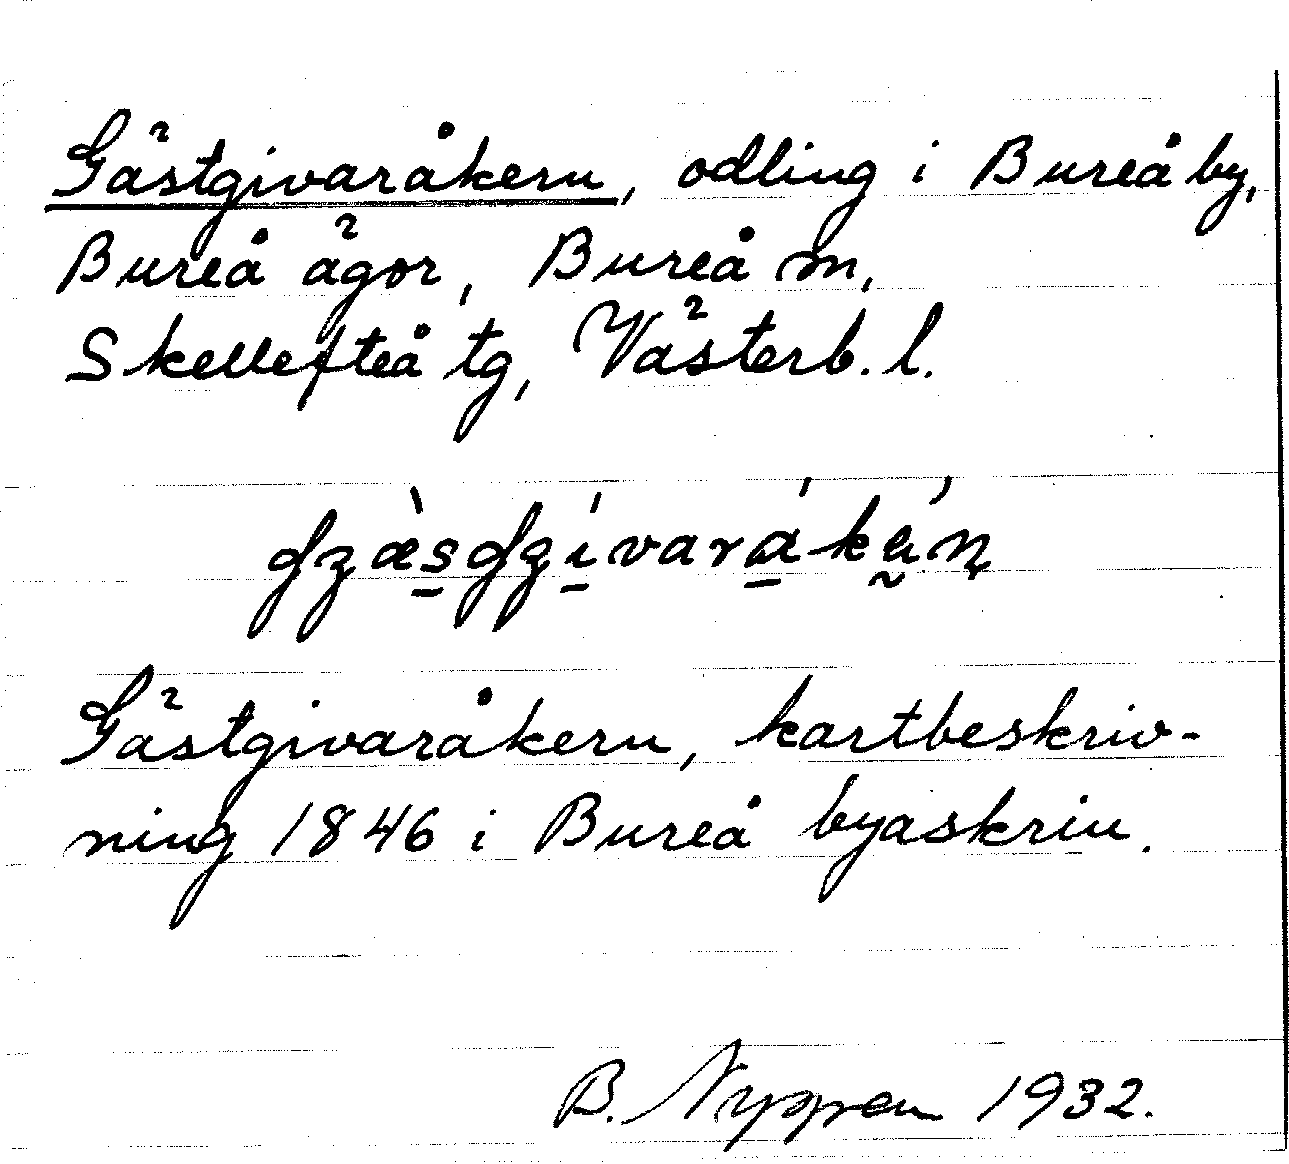 Gästgivaråkern, odling i Bureå by,
Bureå ägor, Bureå sn,
Skellefteå tg, Västerb. l.
Gästgivaråkern, kartbeskriv-
ning 1846 i Bureå byaskrin.
B. Nyppen 1932.